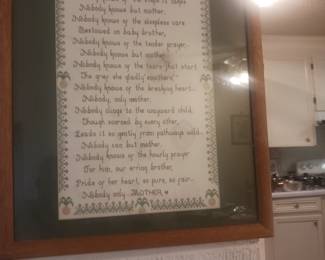 Nobody knows but mother.
Nobody knows of the sleepless care
Bestowed on baby brother,
Nobody knows of the tender prayer.
Nobody knows but mother.
Nobody knows of the tears that start
The grey she gladly
Nobody knows of the breaking heart...
Nobody, only mother.
Nobody clings to the wayward child,
Though scorned by every other,
Leads it so gently from pathways wild,
Nobody can but mother.
Nobody knows of the hourly prayer
For him, our erring brother,
Pride of her heart, so pure, so fair...
Nobody only MOTHER